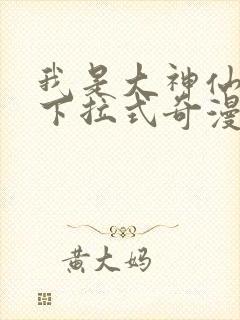 我是大神仙
下拉式奇漫
黄大妈